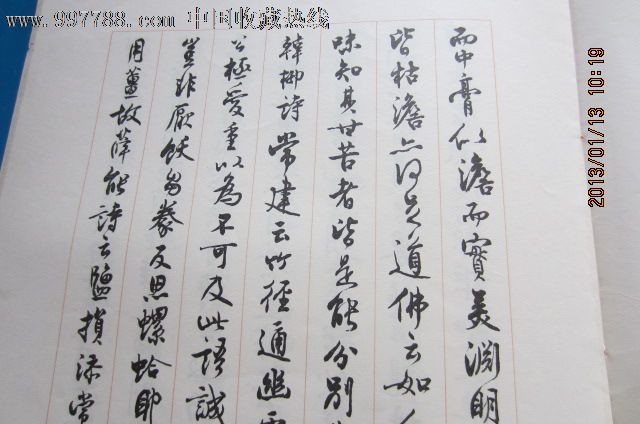 www.997788.com 中国收藏热线
2013/01/13 10:19
而中膏似澹而實美淵明
皆枯澹亦何足道佛云如人
味知其甘苦者皆是能分別
韓柳詩常建云竹徑通幽
公極愛重以為不可及此語誠
豈非厭飫芻豢反思螺蛤耶
用薑故薛能詩云鹽損添常